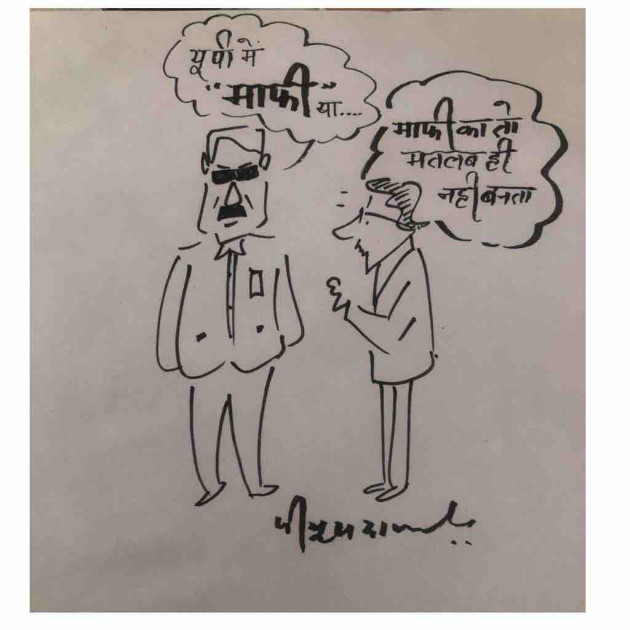 यूपी में
"माफी" या....
माफी का तो
मतलब ही
नही बनता